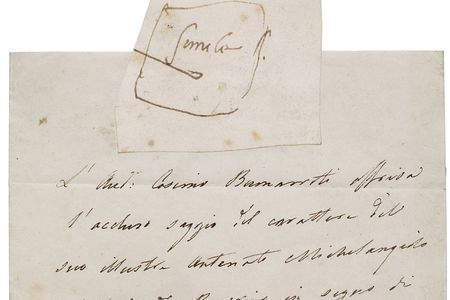 simile
L'Aud: Cosimo Buonarroti offriva
l'accluso saggio del carattere del
suo illustre antenato Michelangiolo
in segno di